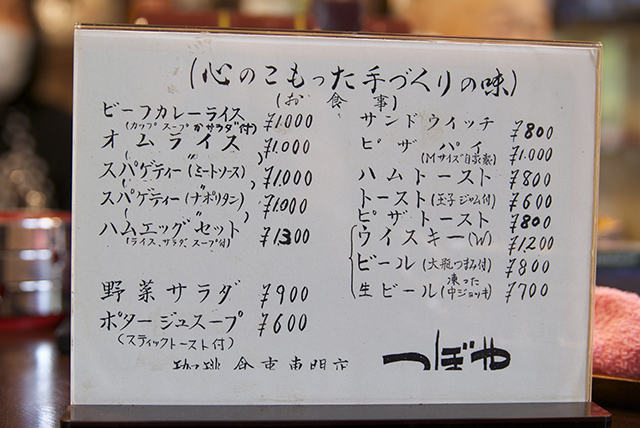 (心のこもった手づくりの味)
(お食事)
ビーフカレーライス ¥1.000
(カップスープかサラダ付)
オムライス ¥1.000
( 〃 )
スパゲティー(ミートソース) ¥1.000
( 〃 )
スパゲティー(ナポリタン) ¥1.000
( 〃 )
ハムエッグセット ¥1300
(ライス、サラダ、スープ付)
野菜サラダ ¥900
ポタージュスープ ¥600
(スティックトースト付)
サンドウィッチ ¥800
ピザパイ ¥1.000
(Mサイズ自家製)
ハムトースト ¥800
トースト(玉子ジャム付) ¥600
ピザトースト ¥800
ウイスキー(W) ¥1,200
ビール(大瓶つまみ付) ¥800
生ビール(凍った中ジョッキ) ¥700
つぼや